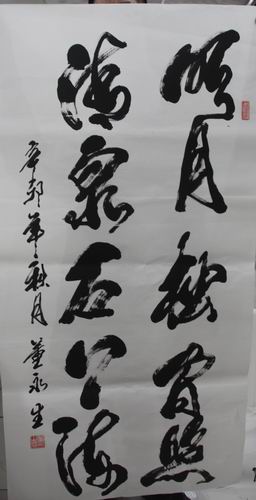 明月松间照
清泉石上流
辛卯年秋月 董永生